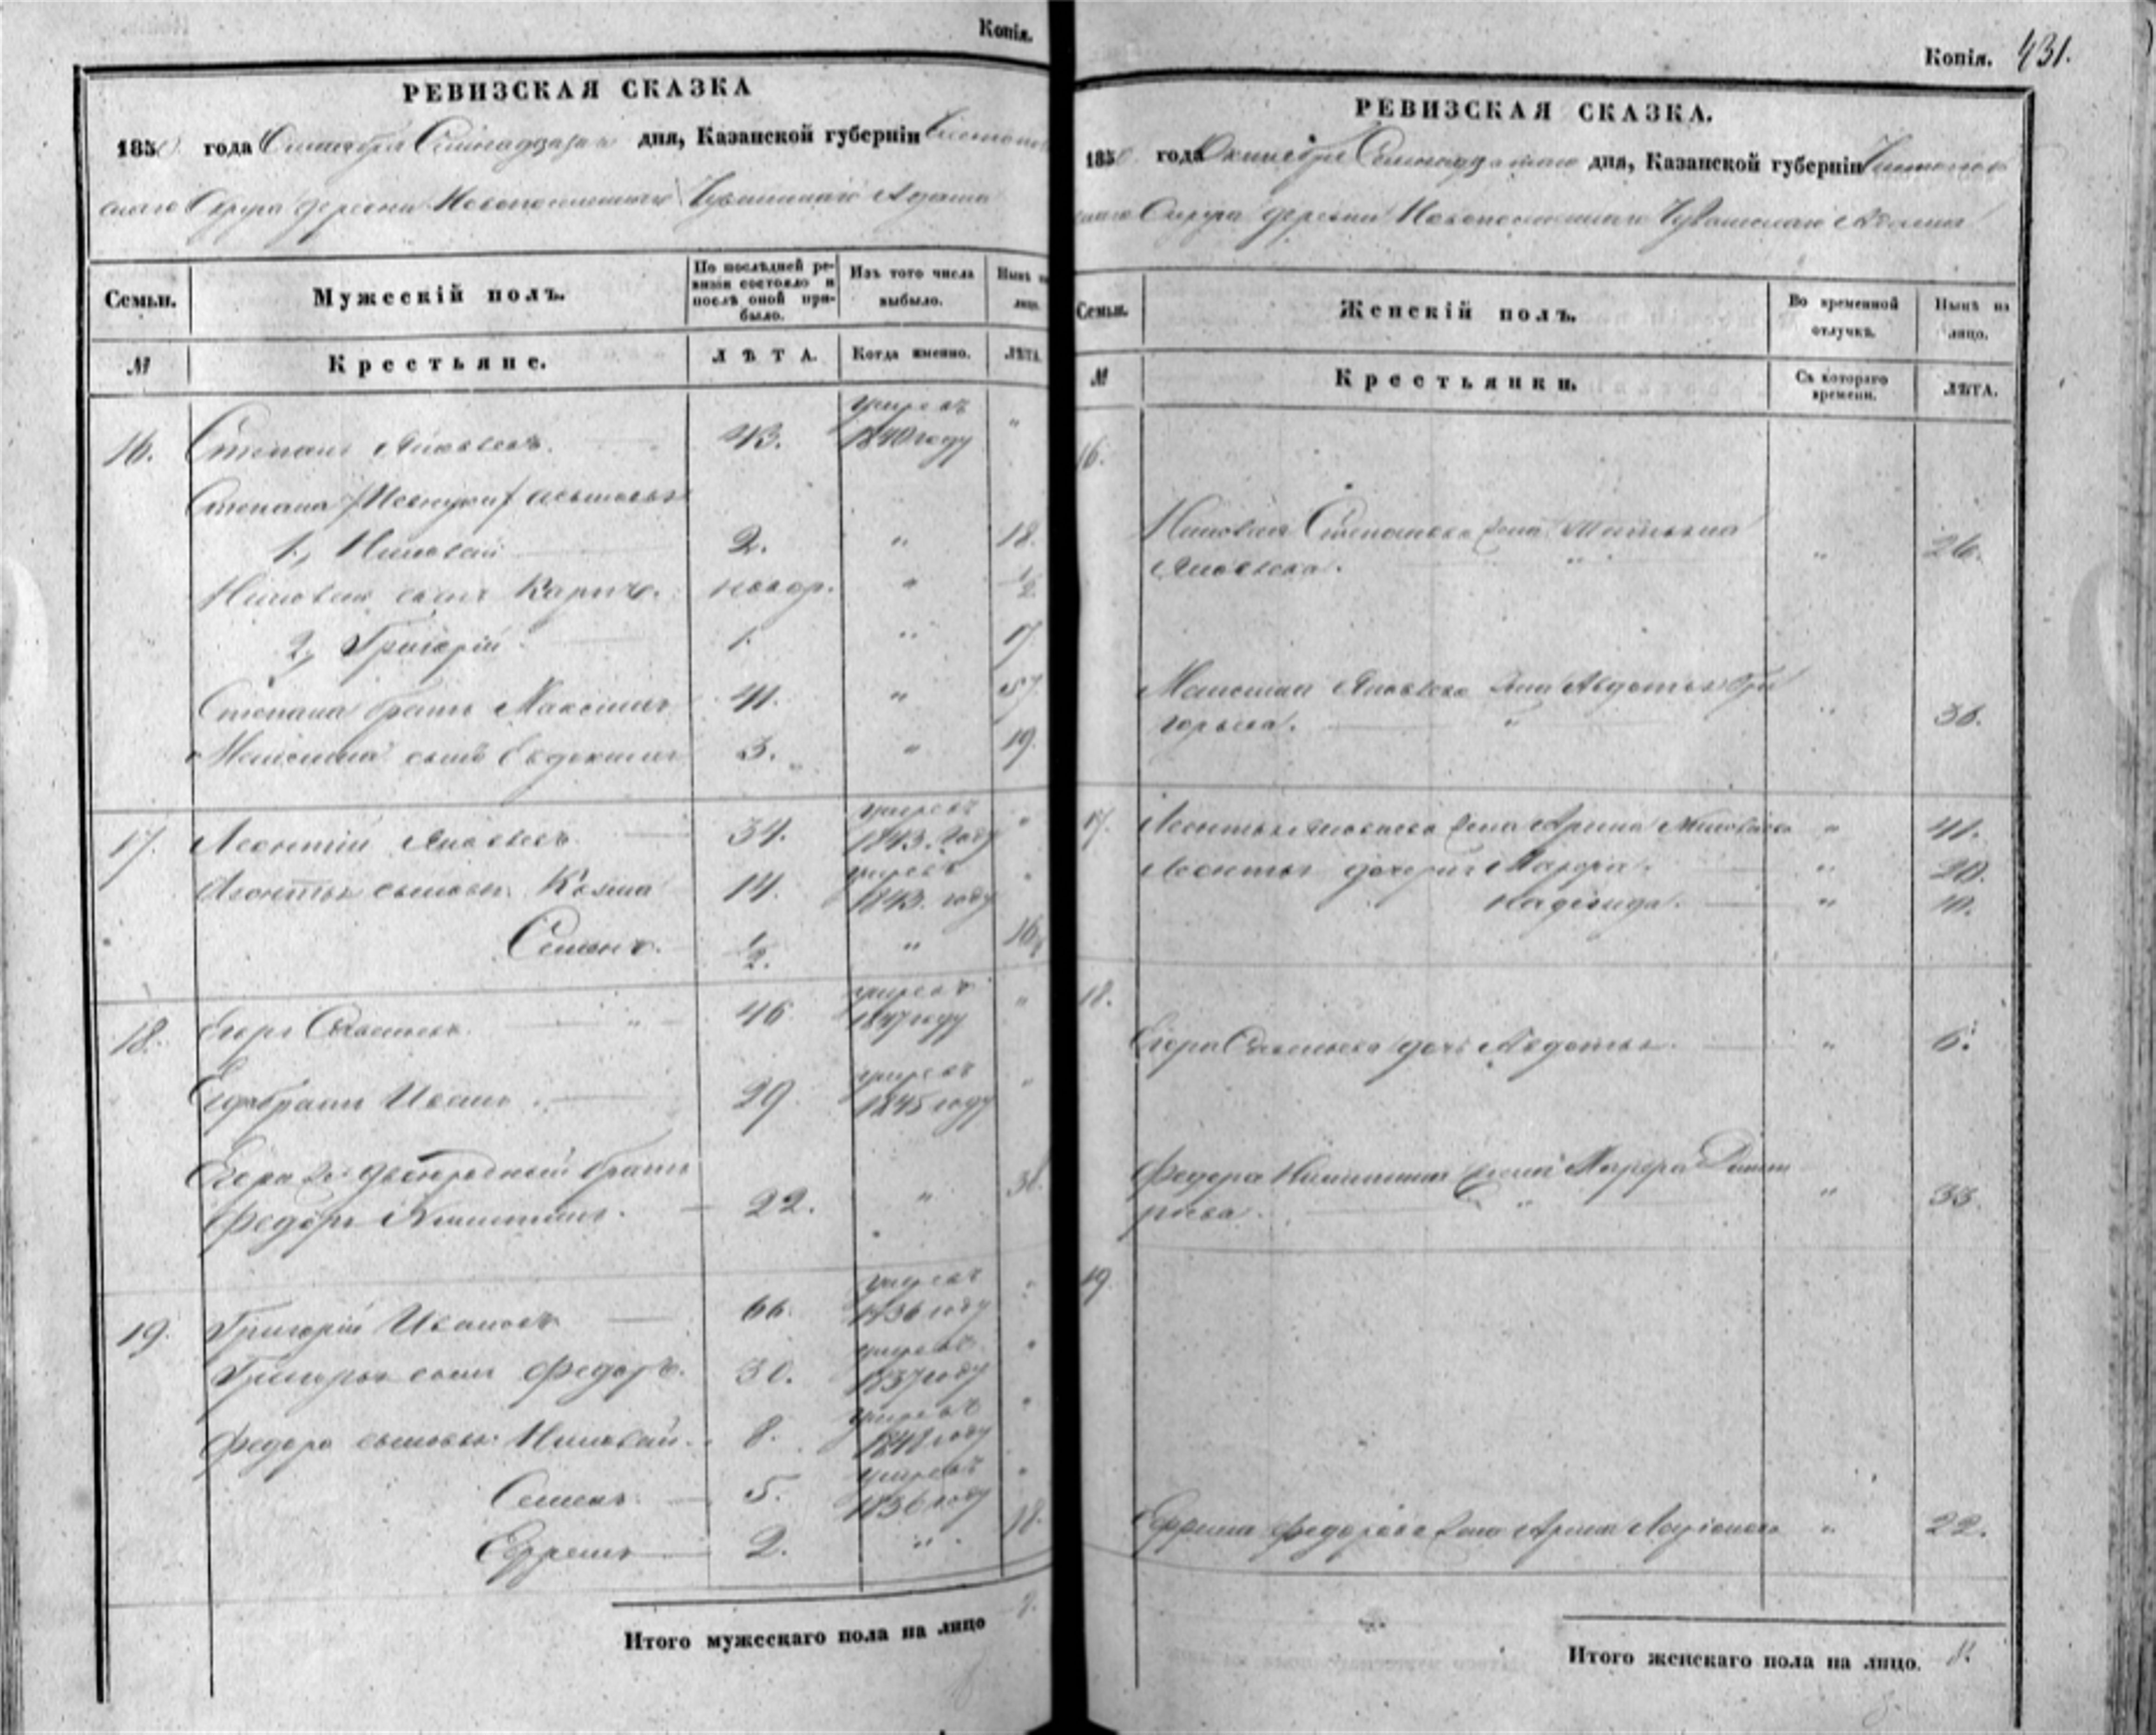 Копія.
РЕВИЗСКАЯ СКАЗКА
1850 года Октября Семнадцатаго дня, Казанской губерніи Чистополь
скаго Округа деревни Новопоселенной Чувашской Адама
Семьи. Мужескій полъ. По послѣдней ревизіи состояло и послѣ оной прибыло. Изъ того числа выбыло. Нынѣ на лицо.
№ Крестьяне. ЛѢТА. Когда именно. ЛѢТА.
16. Степанъ Яковлевъ. 43. умеръ 1840 году "
Степана сыновья
1, Николай 2. " 18.
Николая сынъ новор. " 1/2
2, Григорій 1. " 17
Степана братъ Максимъ 41. " 57
Максима сынъ Евдокимъ 3. " 19.
17. Леонтій Яковлевъ 34. умеръ 1843. году "
Леонтья сыновья Козма 14. умеръ 1843. году "
Семенъ. 1/2. " 16 1/2
18. Егоръ Савельевъ. 46 умеръ 1847 году "
Егора братъ Иванъ. 29 умеръ 1845 году "
Егора двоюродный братъ
Федоръ Никитинъ. 22. " 38.
19. Григорій Ивановъ 66. умеръ 1836 году
Григорья сынъ Федоръ. 30. умеръ 1837 году "
Федора сыновья Николай. 8. умеръ 1848 году "
Семенъ. 5. умеръ 1836 году "
Ефремъ 2. " 18.
Итого мужескаго пола на лицо 8.
Копія. 431.
РЕВИЗСКАЯ СКАЗКА.
1850 года Октября Семнадцатаго дня, Казанской губерніи Чистополь
скаго Округа деревни Новопоселенной Чувашской Адама
Семьи. Женскій полъ. Во временной отлучкѣ. Нынѣ на лицо.
№ Крестьянки. Съ котораго времени. ЛѢТА.
16.
Николая Степанова жена Матрена
Яковлева. " 26.
Максима Яковлева жена Авдотья Гри
горьева. " 36.
17. Леонтья Яковлева жена Арина Николаева " 41.
Леонтья дочери Марфа. " 20.
Надежда. " 10.
18.
Егора Савельева дочь Авдотья. " 6.
Федора Никитина жена Марфа Дмит
ріева. " 33.
19.
Ефрема Федорова жена Арина Ларіонова " 22.
Итого женскаго пола на лицо. 8.